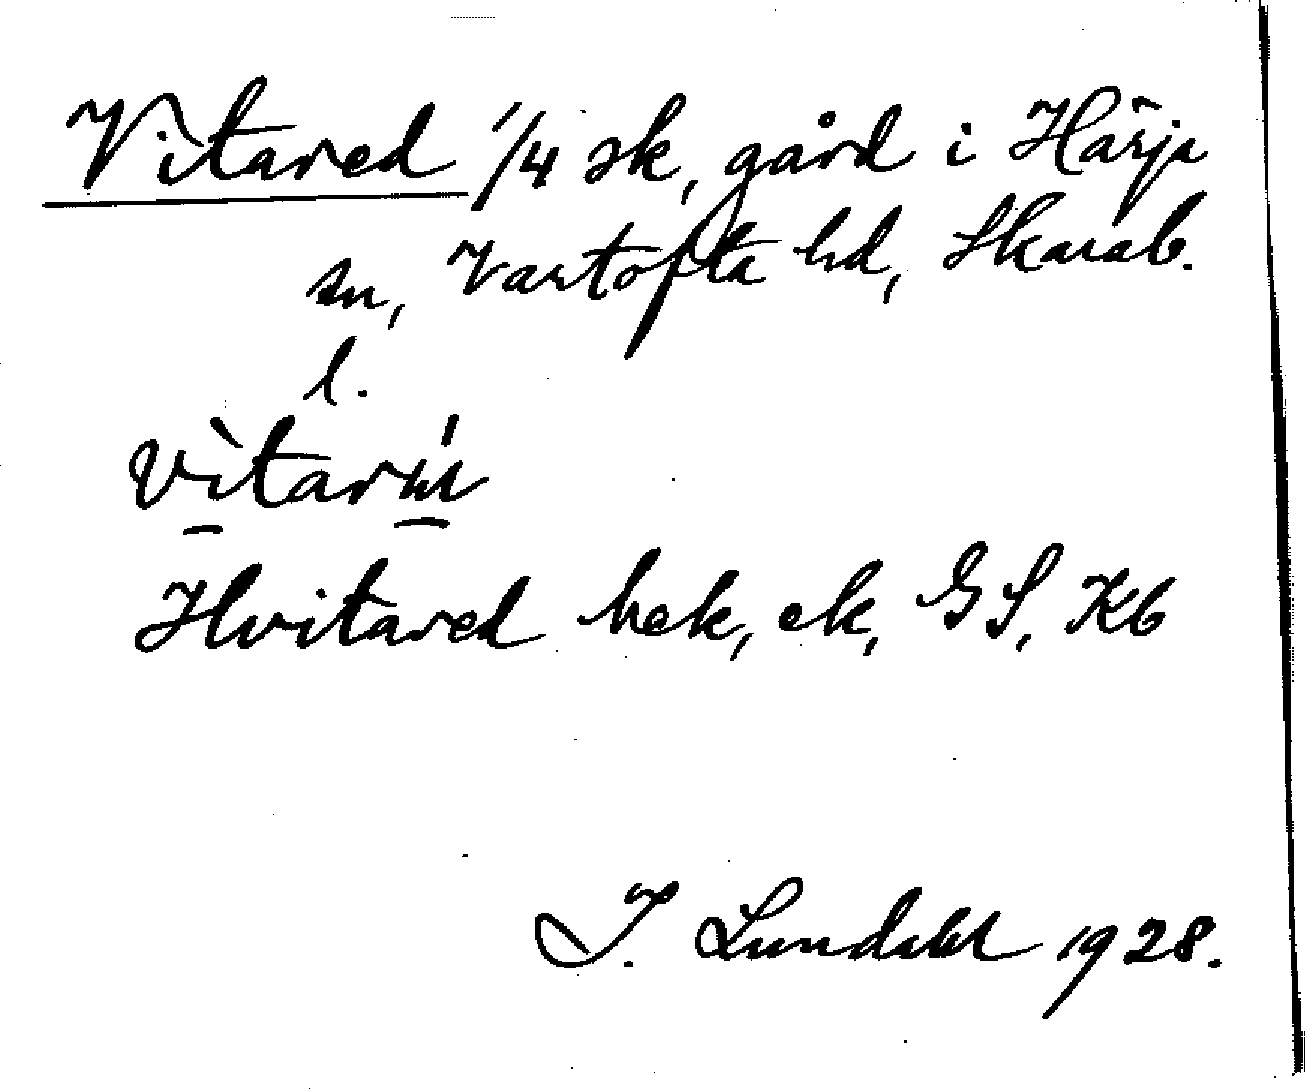 Vitared 1/4 sk, gård i Härja
sn, Vartofta hd, Skarab.
l.
Hvitared hek, ek, GS, Kb
I. Lundahl 1928.